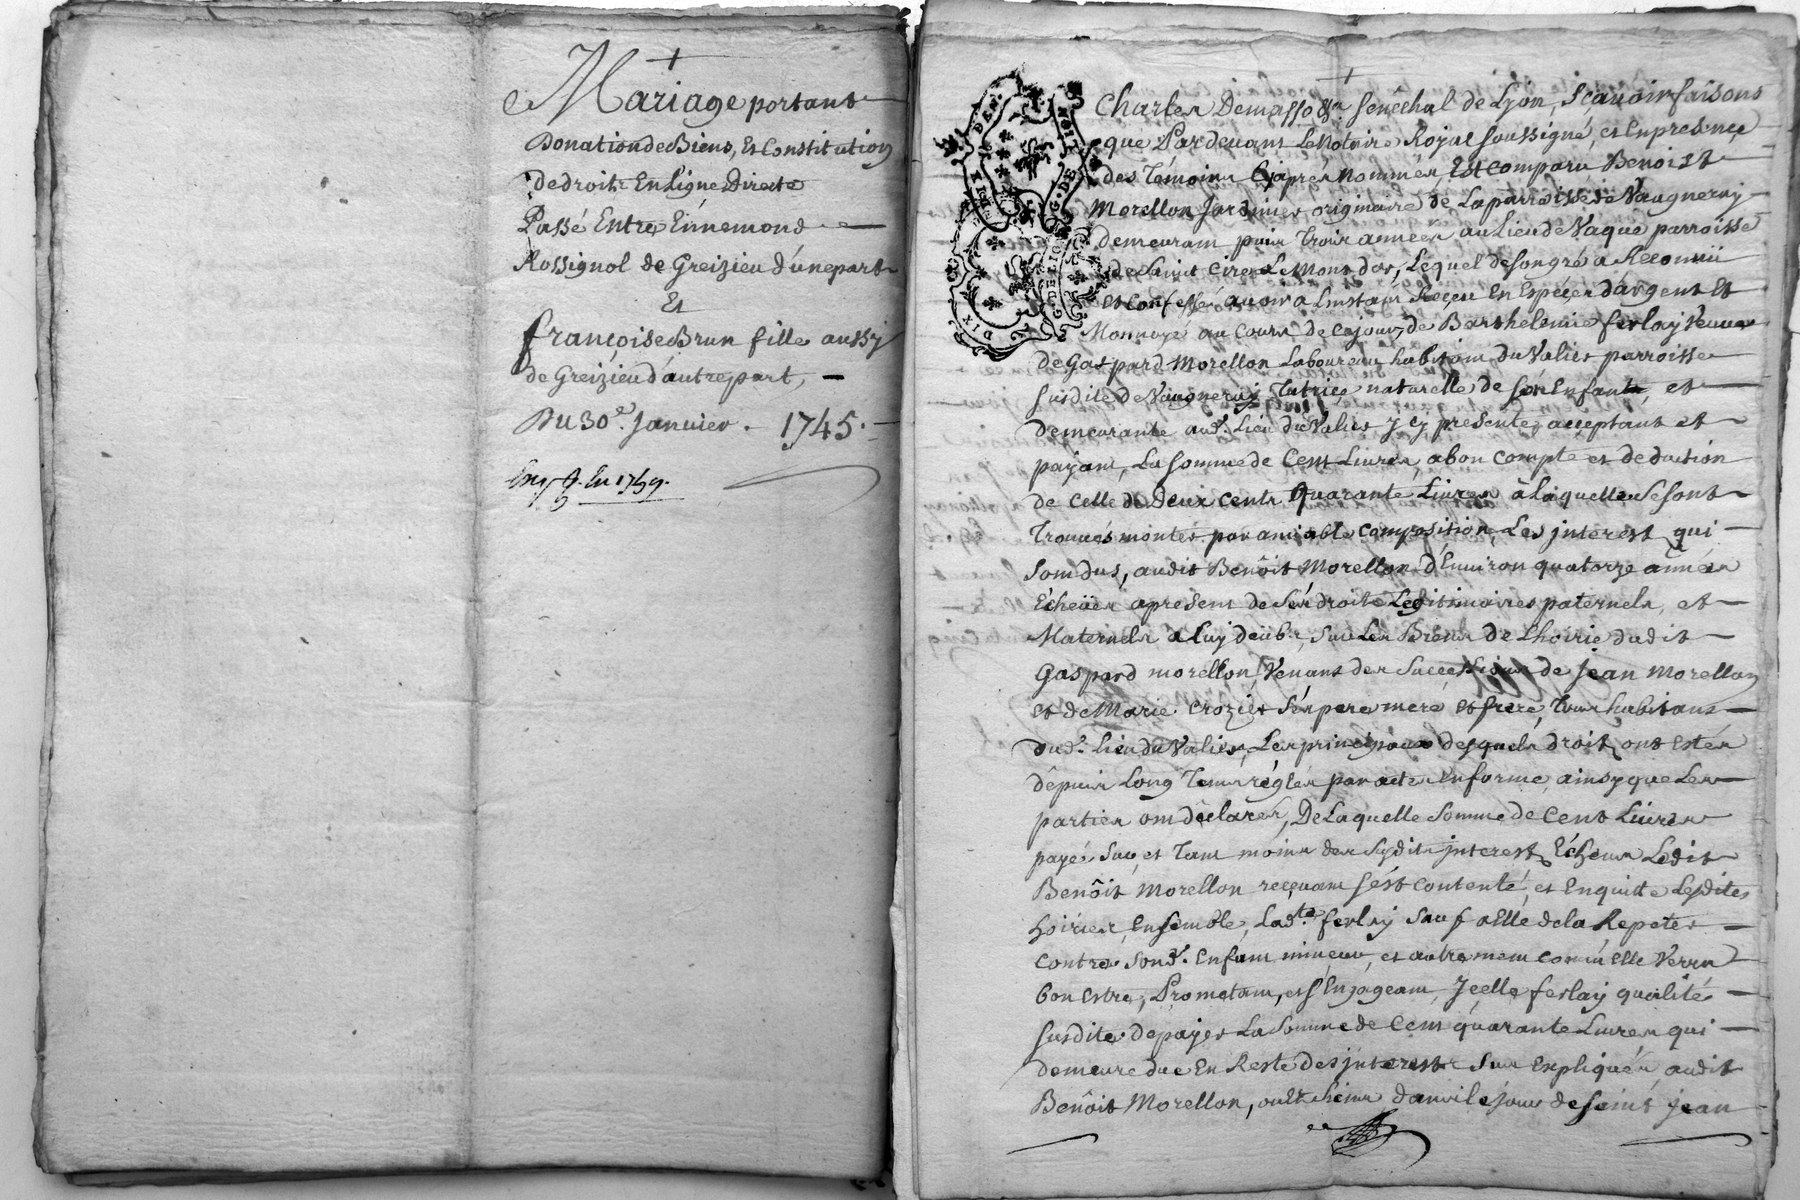 Mariage portant
Donation de Biens, Et Constitution
de droits En Ligne Directe
Passé Entre Ennemond
Rossignol de Greizieu d'une part
Et
françoise Brun fille aussy
de Greizieu d'autre part,
Du 30e. Janvier. 1745.
en 1759.
Charles Demasso &a. senéchal de Lyon, scavoir faisons
que Pardevant Le Notaire Royal soussigné, et En presence
des Témoins Cy après nommés, Est comparu Benoist
Morellon Jardinier originaire de La parroisse de Vaugneray
demeurant puis trois années au Lieu de Vaque parroisse
de Saint Cire Le Mont dor, Lequel de son gré a Reconnû
et confessé avoir a Linstant Reçeu En Espéces d'argent Et
Monnoye au cours de ce jour, de Barthelemie ferlay Veuve
de Gaspard Morellon Laboureur habitant du Valier parroisse
susdite de Vaugneray Tutrice naturelle de ses Enfants, et
demeurante aud. Lieu du Valier y cy presente, acceptant et
payant, La somme de Cent Livres, a bon compte et deduction
de celle de Deux Cents Quarante Livres à Laquelle se sont
trouvés montés par amiable composition, Les jnterest qui
sont dus, audit Benôit Morellon d'Environ quatorze années
Echeües a present de ses droits Legitimaires paternels, et
Maternels a Luy deüb. sur Les Biens de L'hoirie dudit
Gaspard morellon, Venants des Successions de jean Morellon
et de Marie Crozier ses pere mere et frere, tous habitans
dud. Lieu du Valier, Les principaux desquels droits ont estés
dépuis Long Tems réglés par actes En forme, ainsy que Les
parties ont déclarés, De Laquelle somme de Cent Livres
payée sur, et Tant moins des susdits jnterest Echeus Ledit
Benôit Morellon reçevant s'est contenté, et En quitte Lesdites
hoiries, Ensemble, Lad.te ferlay sauf a Elle de La Repeter
contre sesd. Enfans mineurs, et autrement comm' elle verra
bon Estre, Prometant, et s'Engageant, Jcelle ferlay qualité
susdite de payer La Somme de Cent quarante Livres qui
demeure due En Reste des jnterest sus Expliqués, audit
Benôit Morellon, ou Et siens dans le jour de saint jean